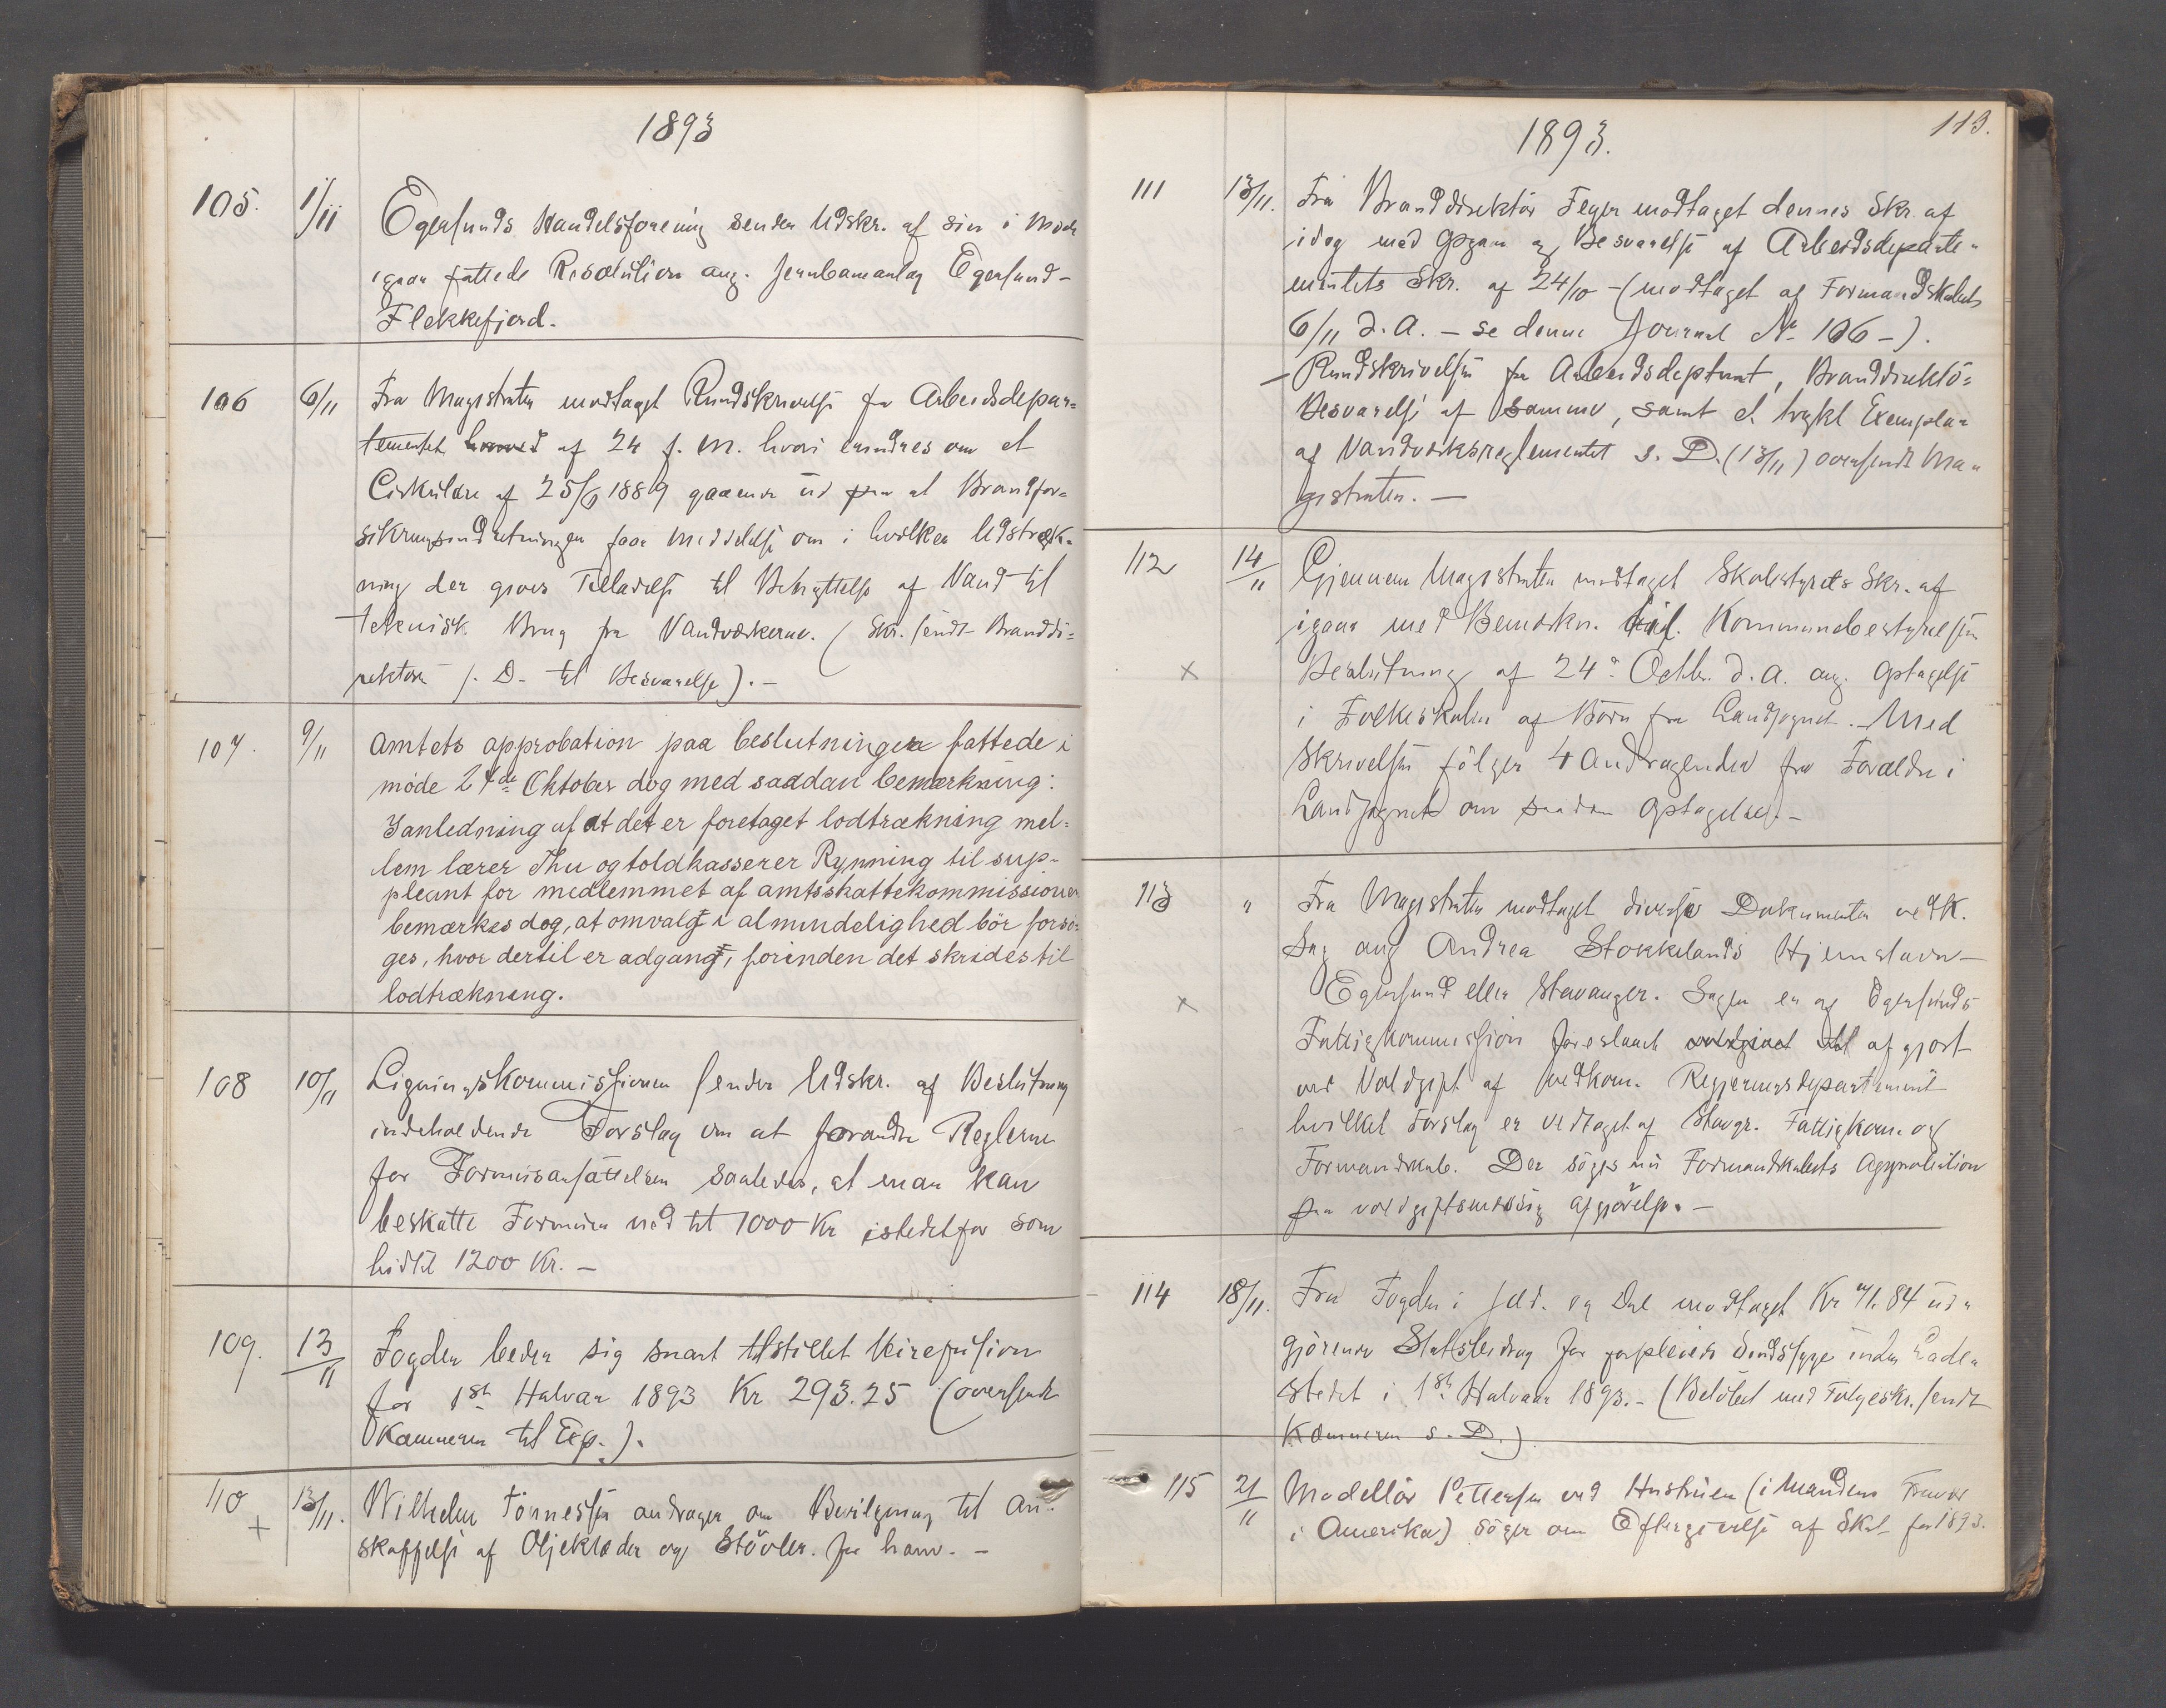 1893
105. 1/11 Egersunds Handelsforening sender Udskr. af sin i Mode
igaar fattede Resolution ang. Jernbaneanlæg Egersund-
Flekkefjord.
106 6/11 Fra Magistraten modtaget Rundskrivelse fra Arbeidsdepar-
tementet af 24 f. M. hvori erindres om et
Cirkulære af 25/6 1889 gaaende ud paa at Brandfor-
sikringsindretningen faar Meddelelse om i hvilken Udstræk-
ning der gives Tilladelse til Benyttelse af Vand til
teknisk Brug fra Vandværkerne. (Skr. sendt Branddi-
rektøren s. D. til Besvarelse). -
107. 9/11 Amtets approbation paa beslutninger fattede i
møde 24de Oktober dog med saadan bemærkning:
I anledning af at det er foretaget lodtrækning mel-
lem lærer Thu og toldkasserer Rynning til sup-
pleant for medlemmet af amtsskattekommissionen
bemærkes dog, at omvalg i almindelighed bör forsö-
ges, hvor dertil er adgang, forinden det skrides til
lodtrækning.
108 10/11 Ligningskommissionen sender Udskr. af Beslutning
indeholdende Forslag om at forandre Reglerne
for Formuesansættelsen saaledes, at man kan
beskatte Formuen ned til 1000 Kr istedetfor som
hidtil 1200 Kr. -
109. 13/11 Fogden beder sig snart tilstillet
for 1ste Halvaar 1893 Kr 293.25 (oversendt
Kæmneren til Exp.).
110 + 13/11. Wilhelm Tönnessen andrager om Bevilgning til An-
skaffelse af Oljeklæder og Stövler for ham. -
113.
1893.
111 13/11. Fra Branddirektör Feyer modtaget dennes Skr. af
idag med Opgave og Besvarelse af Arbeidsdeparte-
mentets Skr. af 24/10 - (modtaget af Formandskabet
6/11 d. A. - se denne Journal No 106 -).
- Rundskrivelsen fra Arbeidsdeptmt, Branddirektö-
Besvarelse af samme, samt et trykt Exemplar
af Vandværksreglementet s. D. (13/11) oversendt Ma-
gistraten. -
112 14/11 Gjennem Magistraten modtaget Skolestyrets Skr. af
igaar med Bemærkn. Kommunebestyrelsens
x Beslutning af 24de Octbr. d. A. ang. Optagelse
i Folkeskolen af Börn fra Landsognet. - Med
Skrivelsen fölger 4 Andragender fra Forældre i
Landsognet om saadan Optagelse. -
113 " Fra Magistraten modtaget diverse Dokumenter vedk.
Sag ang Andrea Stokkelands Hjemstavn -
x Egersund eller Stavanger. Sagen er af Egersunds
Fattigkommission foreslaaet afgjort
ved Voldgift af vedkom. Regjeringsdepartement
hvilket Forslag er vedtaget af Stavgr. Fattigkom. og
Formandskab. Der söges nu Formandskabets Approbation
paa voldgiftsmæssig Afgjörelse. -
114 18/11. Fra Fogden i Jæd. og Dal. modtaget Kr 84 ud-
gjörende Statsbidrag for forpleiede Sindssyge inden Lade-
stedet i 1ste Halvaar 1893. - (Belöbet med Fölgeskr. sendt
Kæmneren s. D.)
115 21/11 Modellör Pettersen ved Hustruen (i Mandens Fravær
i Amerika) söger om Eftergivelse af Skat for 1893.